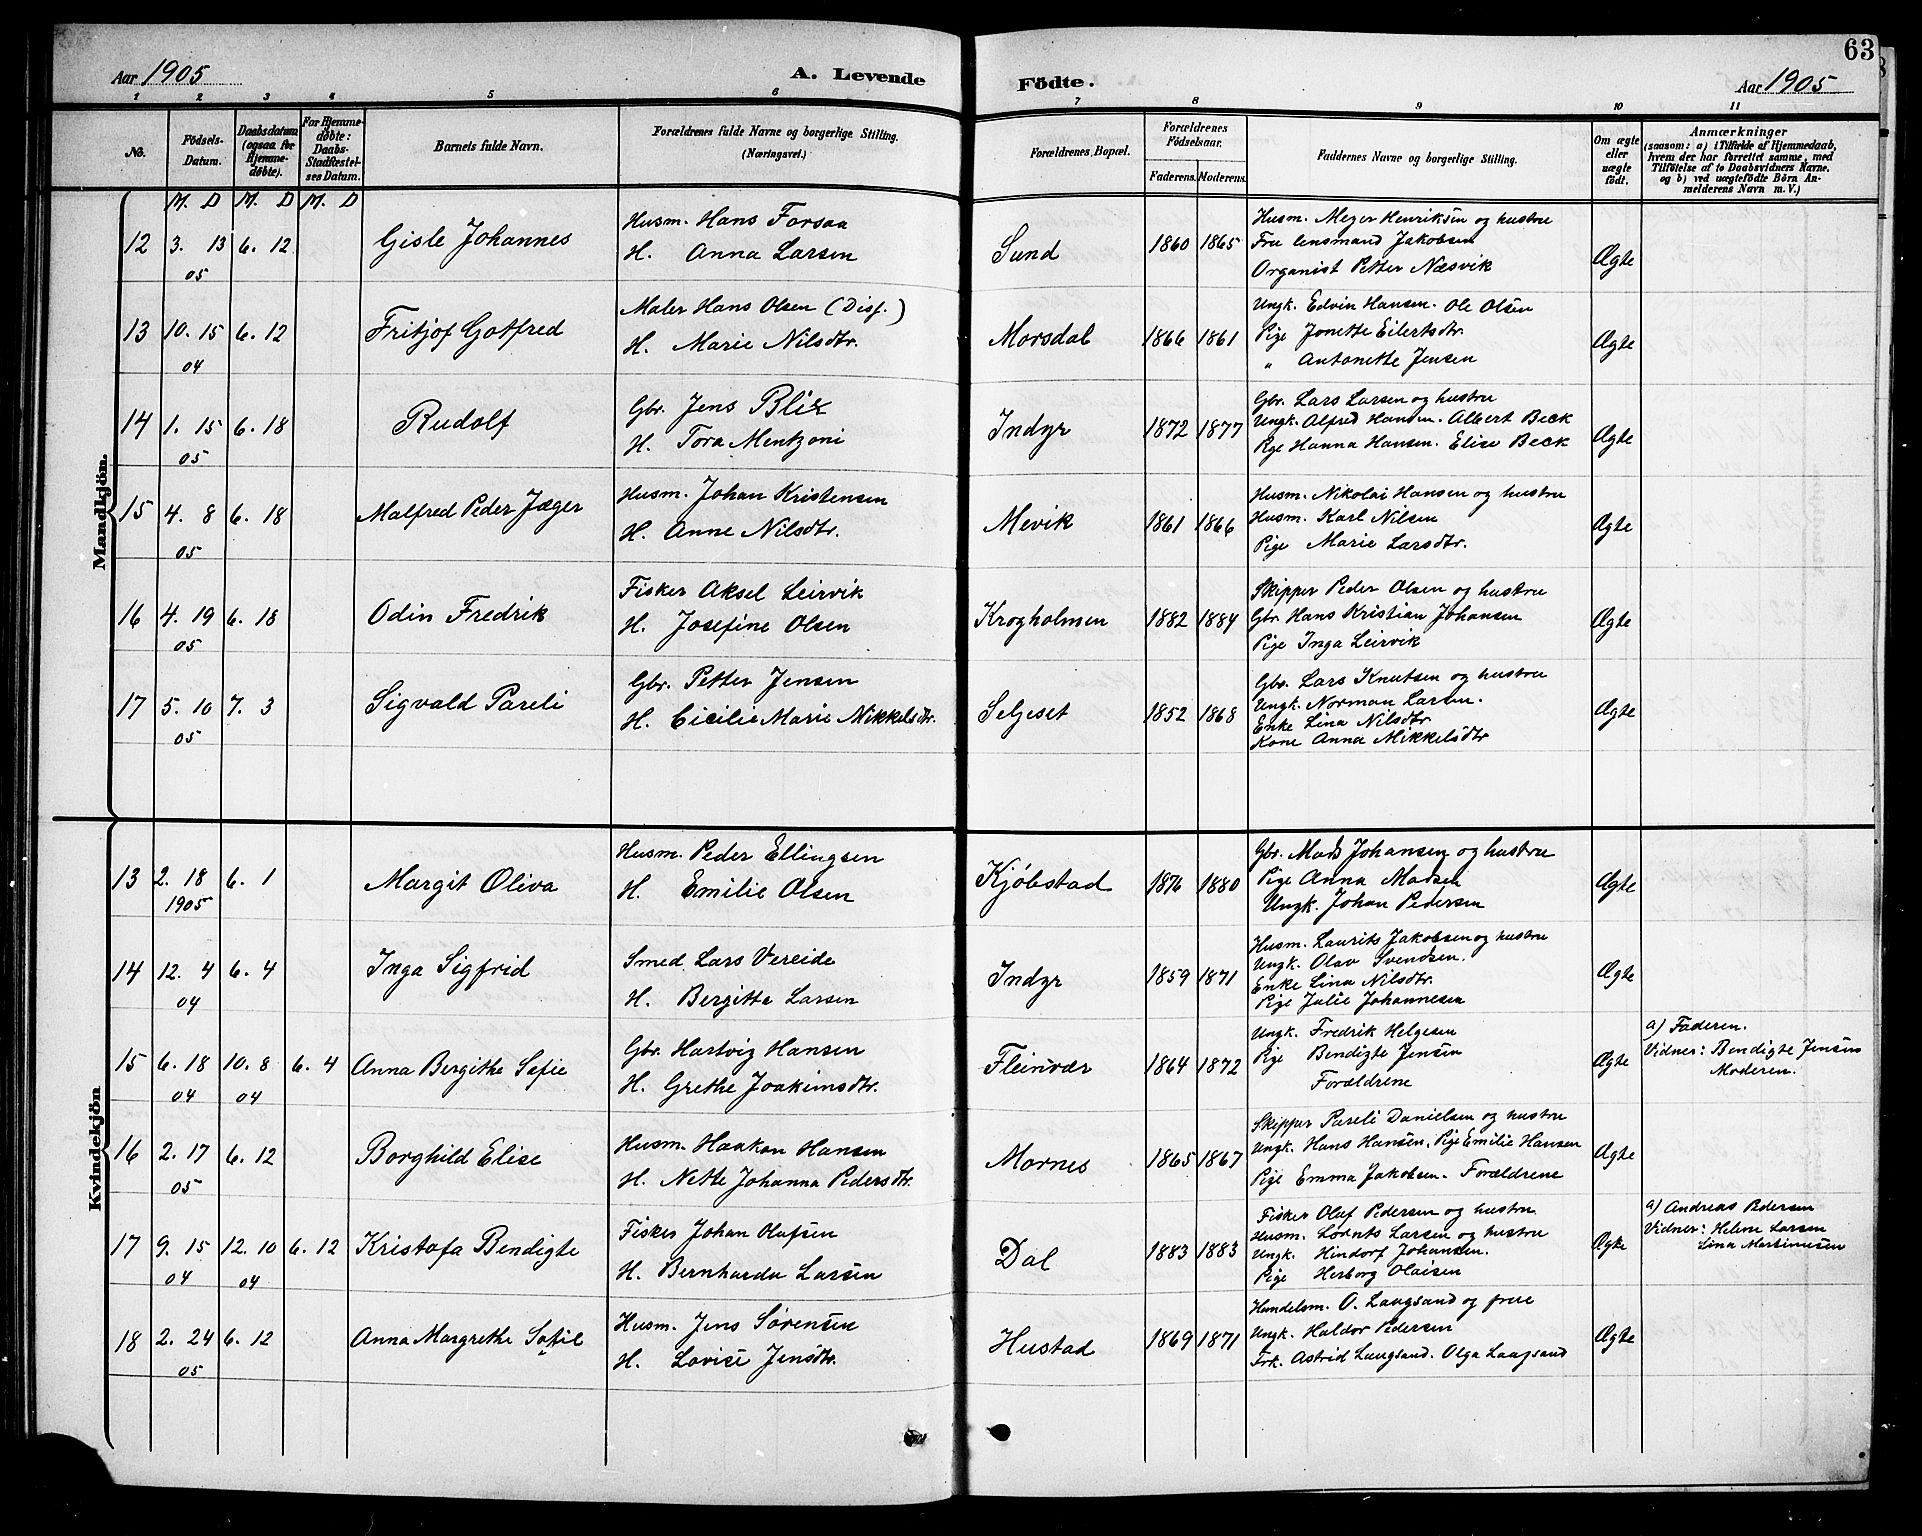 63
Aar 1905
A. Levende
Födte.
Aar 1905
1 2 3 4 5 6 7 8 9 10 11
No.
Födsels-Datum.
Daabsdatum (ogsaa for Hjemme-døbte).
For Hjemme-døbte: Daabs-Stadfæstel-ses Datum.
Barnets fulde Navn.
Forældrenes fulde Navne og borgerlige Stilling. (Næringsvei.)
Forældrenes Bopæl.
Forældrenes Födselsaar.
Faderens. Moderens.
Faddernes Navne og borgerlige Stilling.
Om ægte eller uægte födt.
Anmærkninger
(saasom: a) i Tilfælde af Hjemmedaab, hvem der har forrettet samme, med Tilföielse af to Daabsvidners Navne, og b) ved uægtefödte Börn An-melderens Navn m. V.)
Mandkjön.
M. D M. D M. D
12 3. 13 05 6. 12 Gisle Johannes
Husm. Hans Forsaa
H. Anna Larsen
Sund 1860 1865
Husm. Meyer Henriksen og hustru
Fru lensmand Jakobsen
Organist Petter Næsvik
Ægte
13 10. 15 04 6. 12 Fritjof Gotfred
Maler Hans Olsen (Diss.)
H. Marie Nilsdtr.
Morsdal 1866 1861
Ungk. Edvin Hansen. Ole Olsen
Pige Jonette Eilertsdtr.
" Antonette Jensen
Ægte
14 1. 15 05 6. 18 Rudolf
Gbr. Jens Blix
H. Tora Mentzoni
Indyr 1872 1877
Gbr. Lars Larsen og hustru
Ungk. Alfred Hansen. Albert Beck
Pige Hanna Hansen. Elise Beck
Ægte
15 4. 8 05 6. 18 Malfred Peder Jæger
Husm. Johan Kristensen
H. Anne Nilsdtr.
Mevik 1861 1866
Husm. Nikolai Hansen og hustru
Husm. Karl Nilsen
Pige Marie Larsdtr.
Ægte
16 4. 19 05 6. 18 Odin Fredrik
Fisker Aksel Leirvik
H. Josefine Olsen
Krogholmen 1882 1884
Skipper Peder Olsen og hustru
Gbr Hans Kristian Johansen
Pige Inga Leirvik
Ægte
17 5. 10 05 7. 3 Sigvald Pareli
Gbr. Petter Jensen
H. Cicilie Marie Mikkelsdtr.
Seljeset 1852 1868
Gbr. Lars Knutsen og hustru
Ungk. Norman Larsen.
Enke Lina Nilsdtr
Kone Anna Mikkelsdtr
Ægte
Kvindekjön
13 2. 18 1905 6. 1 Margit Oliva
Husm. Peder Ellingsen
H. Emilie Olsen
Kjøbstad 1876 1880
Gbr. Mads Johansen og hustru
Pige Anna Madsen
Ungk. Johan Pedersen
Ægte
14 12. 4 04 6. 4 Inga Sigfrid
Smed Lars Vereide
H. Bergitte Larsen
Indyr 1859 1871
Husm. Laurits Jakobsen og hustru
Ungk. Olav Svendsen.
Enke Lina Nilsdtr.
Pige Julie Johannesen
Ægte
15 6. 18 04 10. 8 04 6. 4 Anna Bergithe Sofie
Gbr. Hartvig Hansen
H. Grethe Joakimsdtr.
Fleinvær 1864 1872
Ungk. Fredrik Helgesen
Pige Bendigte Jensen
Forældrene
Ægte
a) Faderen.
Vidner: Bendigte Jensen
Moderen.
16 2. 17 05 6. 12 Borghild Elise
Husm. Haakon Hansen
H. Nette Johanna Pedersdtr.
Mornes 1865 1867
Skipper Pareli Danielsen og hustru
Ungk. Hans Hansen. Pige Emilie Hansen
Pige Emma Jakobsen. Forældrene
Ægte
17 9. 15 04 12. 10 04 6. 12 Kristofa Bendigte
Fisker Johan Olufsen
H. Bernharda Larsen
Dal 1883 1883
Fisker Oluf Pedersen og hustru
Husm. Lornts Larsen og hustru
Ungk. Hindorf Johansen.
Pige Herborg Olaisen
Ægte
a) Andreas Pedersen
Vidner: Helene Larsen
Lina Martinusen
18 2. 24 05 6. 12 Anna Margrethe Sofie
Husm. Jens Sørensen
H. Lovise Jensdtr.
Hustad 1869 1871
Handelsm. O. Laugsand og frue
Ungk. Haldor Pedersen
Frk. Astrid Laugsand. Olga Laugsand
Ægte